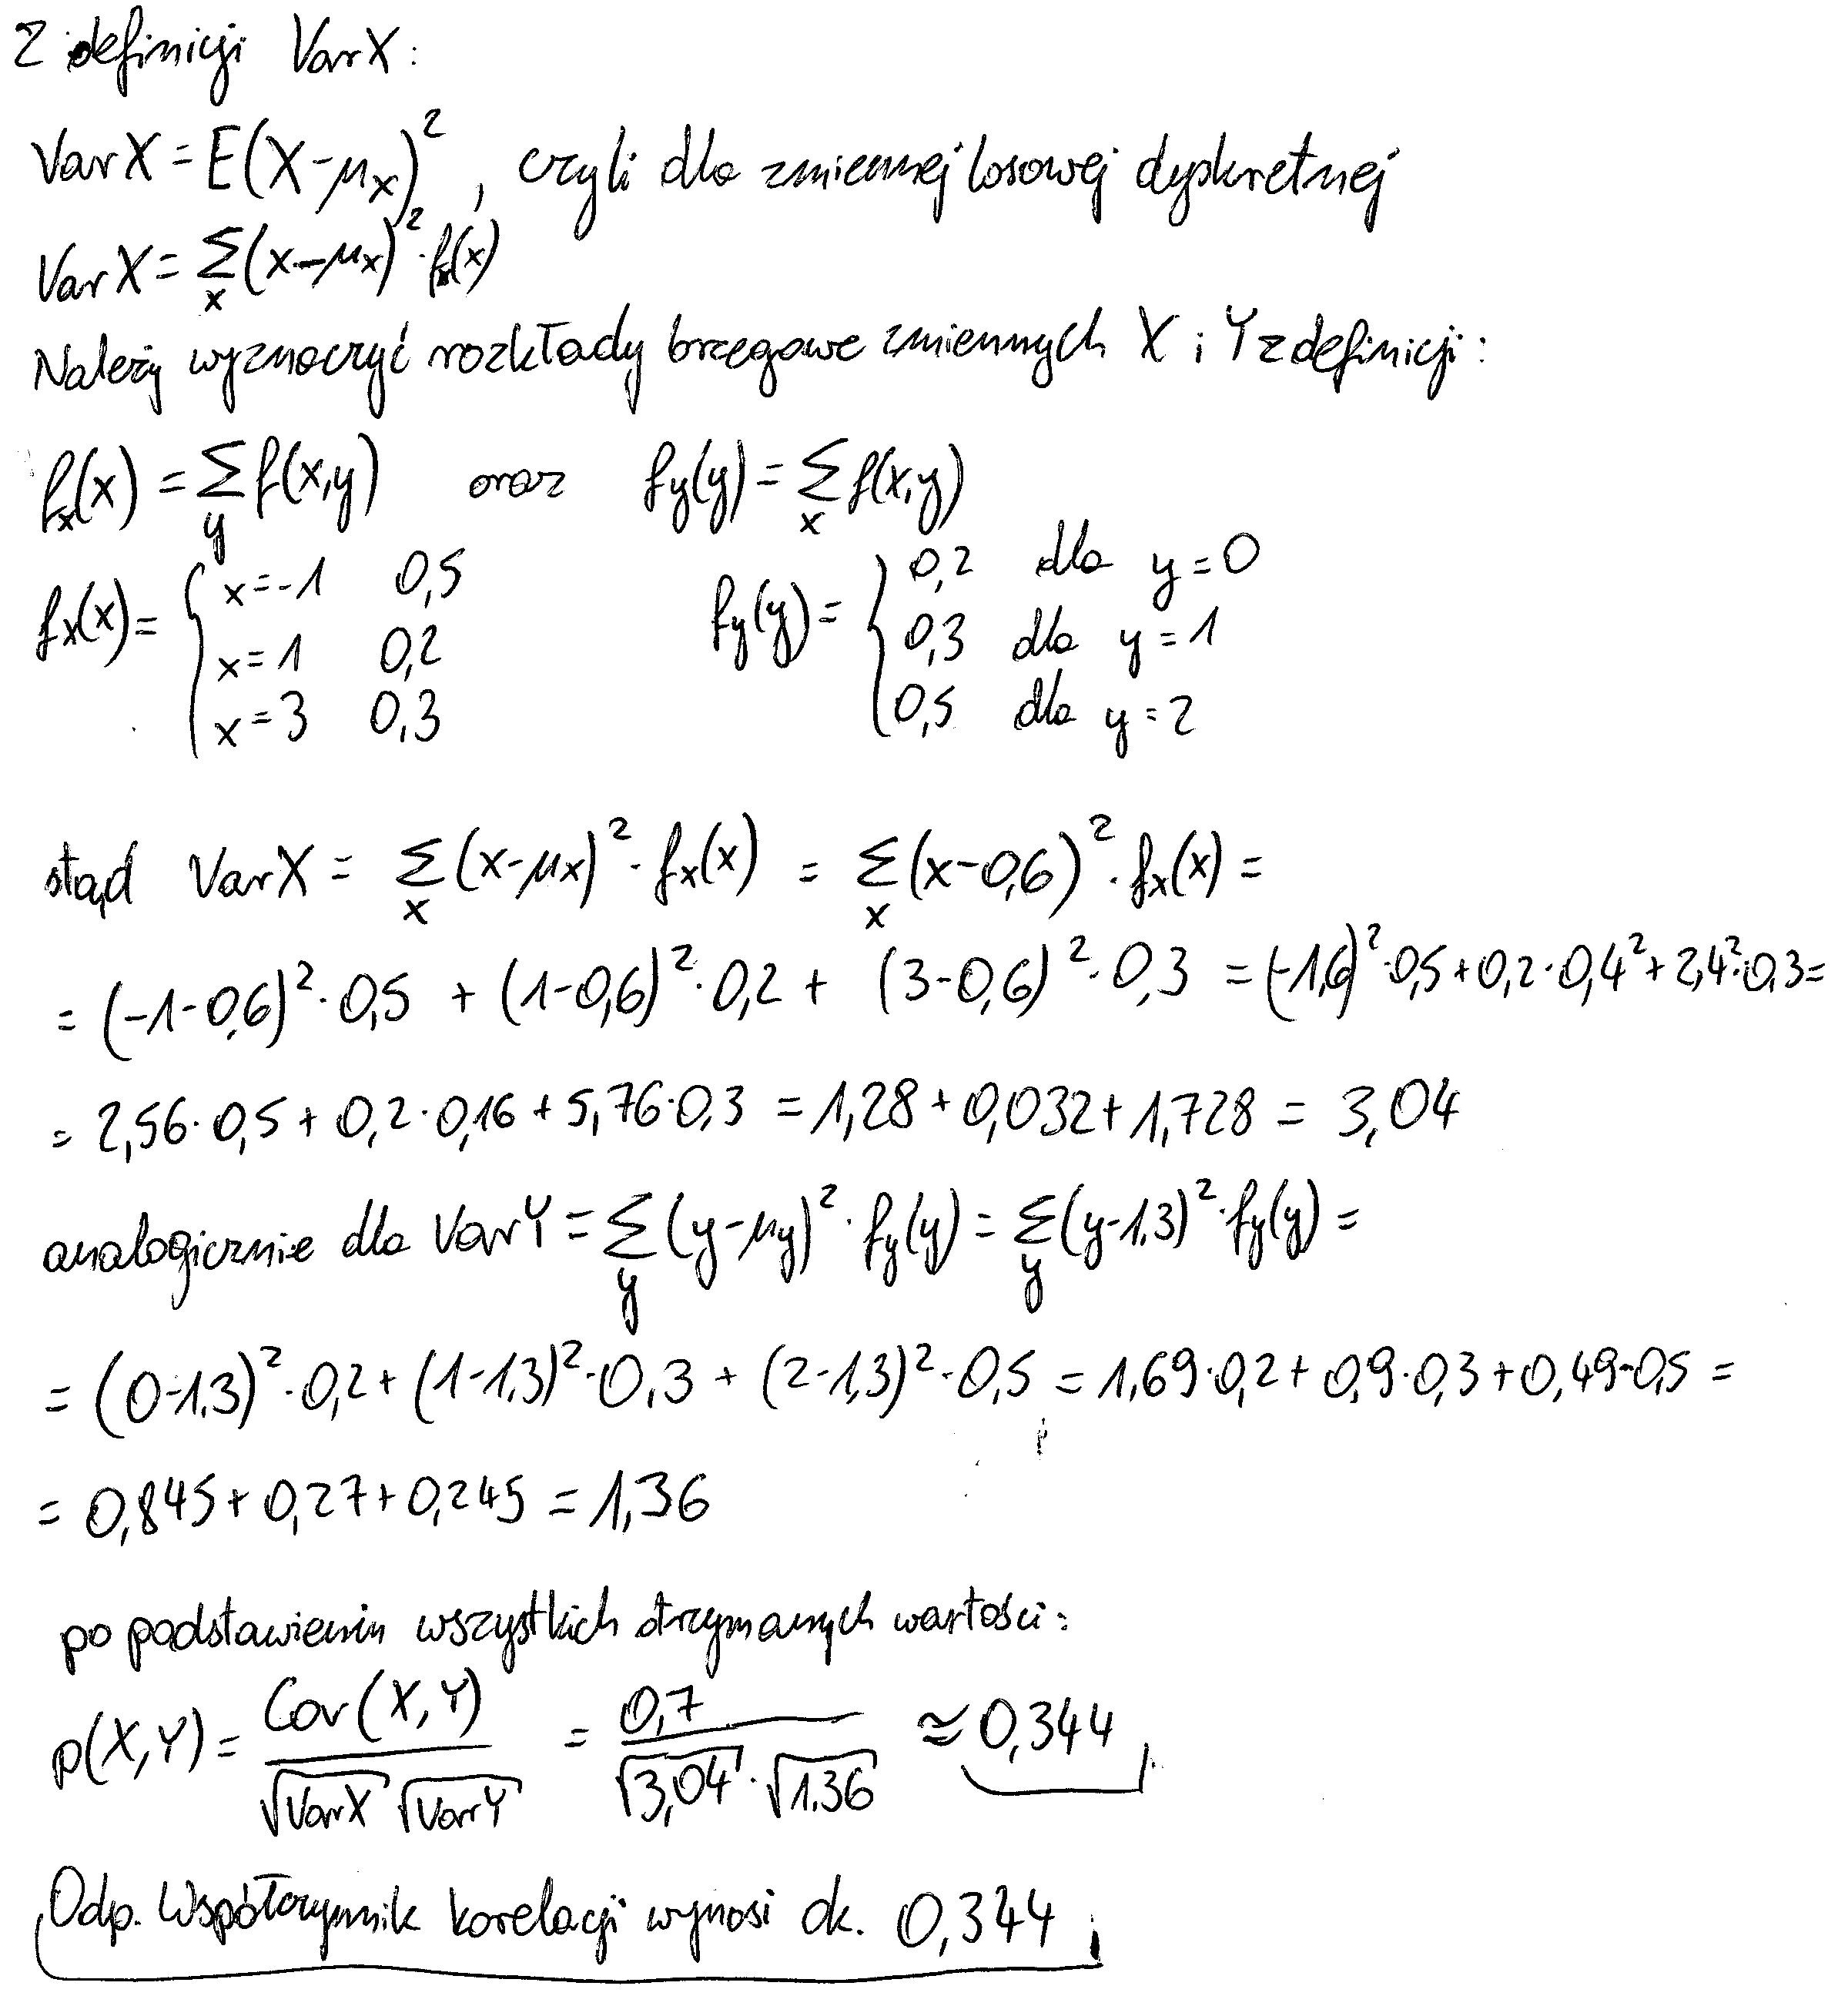 Z definicji VarX:
VarX = E(X-μx)², czyli dla zmiennej losowej dyskretnej
VarX = Σx (x-μx)² · fx(x)
Należy wyznaczyć rozkłady brzegowe zmiennych X i Y z definicji:
fx(x) = Σy f(x,y) oraz fy(y) = Σx f(x,y)
fx(x) = { x=-1 0,5 fy(y) = { 0,2 dla y=0
x=1 0,2 0,3 dla y=1
x=3 0,3 0,5 dla y=2
stąd VarX = Σx (x-μx)² · fx(x) = Σx (x-0,6)² · fx(x) =
= (-1-0,6)² · 0,5 + (1-0,6)² · 0,2 + (3-0,6)² · 0,3 = (-1,6)² · 0,5 + 0,2 · 0,4² + 2,4² · 0,3 =
= 2,56 · 0,5 + 0,2 · 0,16 + 5,76 · 0,3 = 1,28 + 0,032 + 1,728 = 3,04
analogicznie dla VarY = Σy (y-μy)² · fy(y) = Σy (y-1,3)² · fy(y) =
= (0-1,3)² · 0,2 + (1-1,3)² · 0,3 + (2-1,3)² · 0,5 = 1,69 · 0,2 + 0,9 · 0,3 + 0,49 · 0,5 =
= 0,845 + 0,27 + 0,245 = 1,36
po podstawieniu wszystkich otrzymanych wartości:
ρ(X,Y) = Cov(X,Y) / √VarX √VarY = 0,7 / √3,04 · √1,36 ≈ 0,344
Odp. Współczynnik korelacji wynosi ok. 0,344